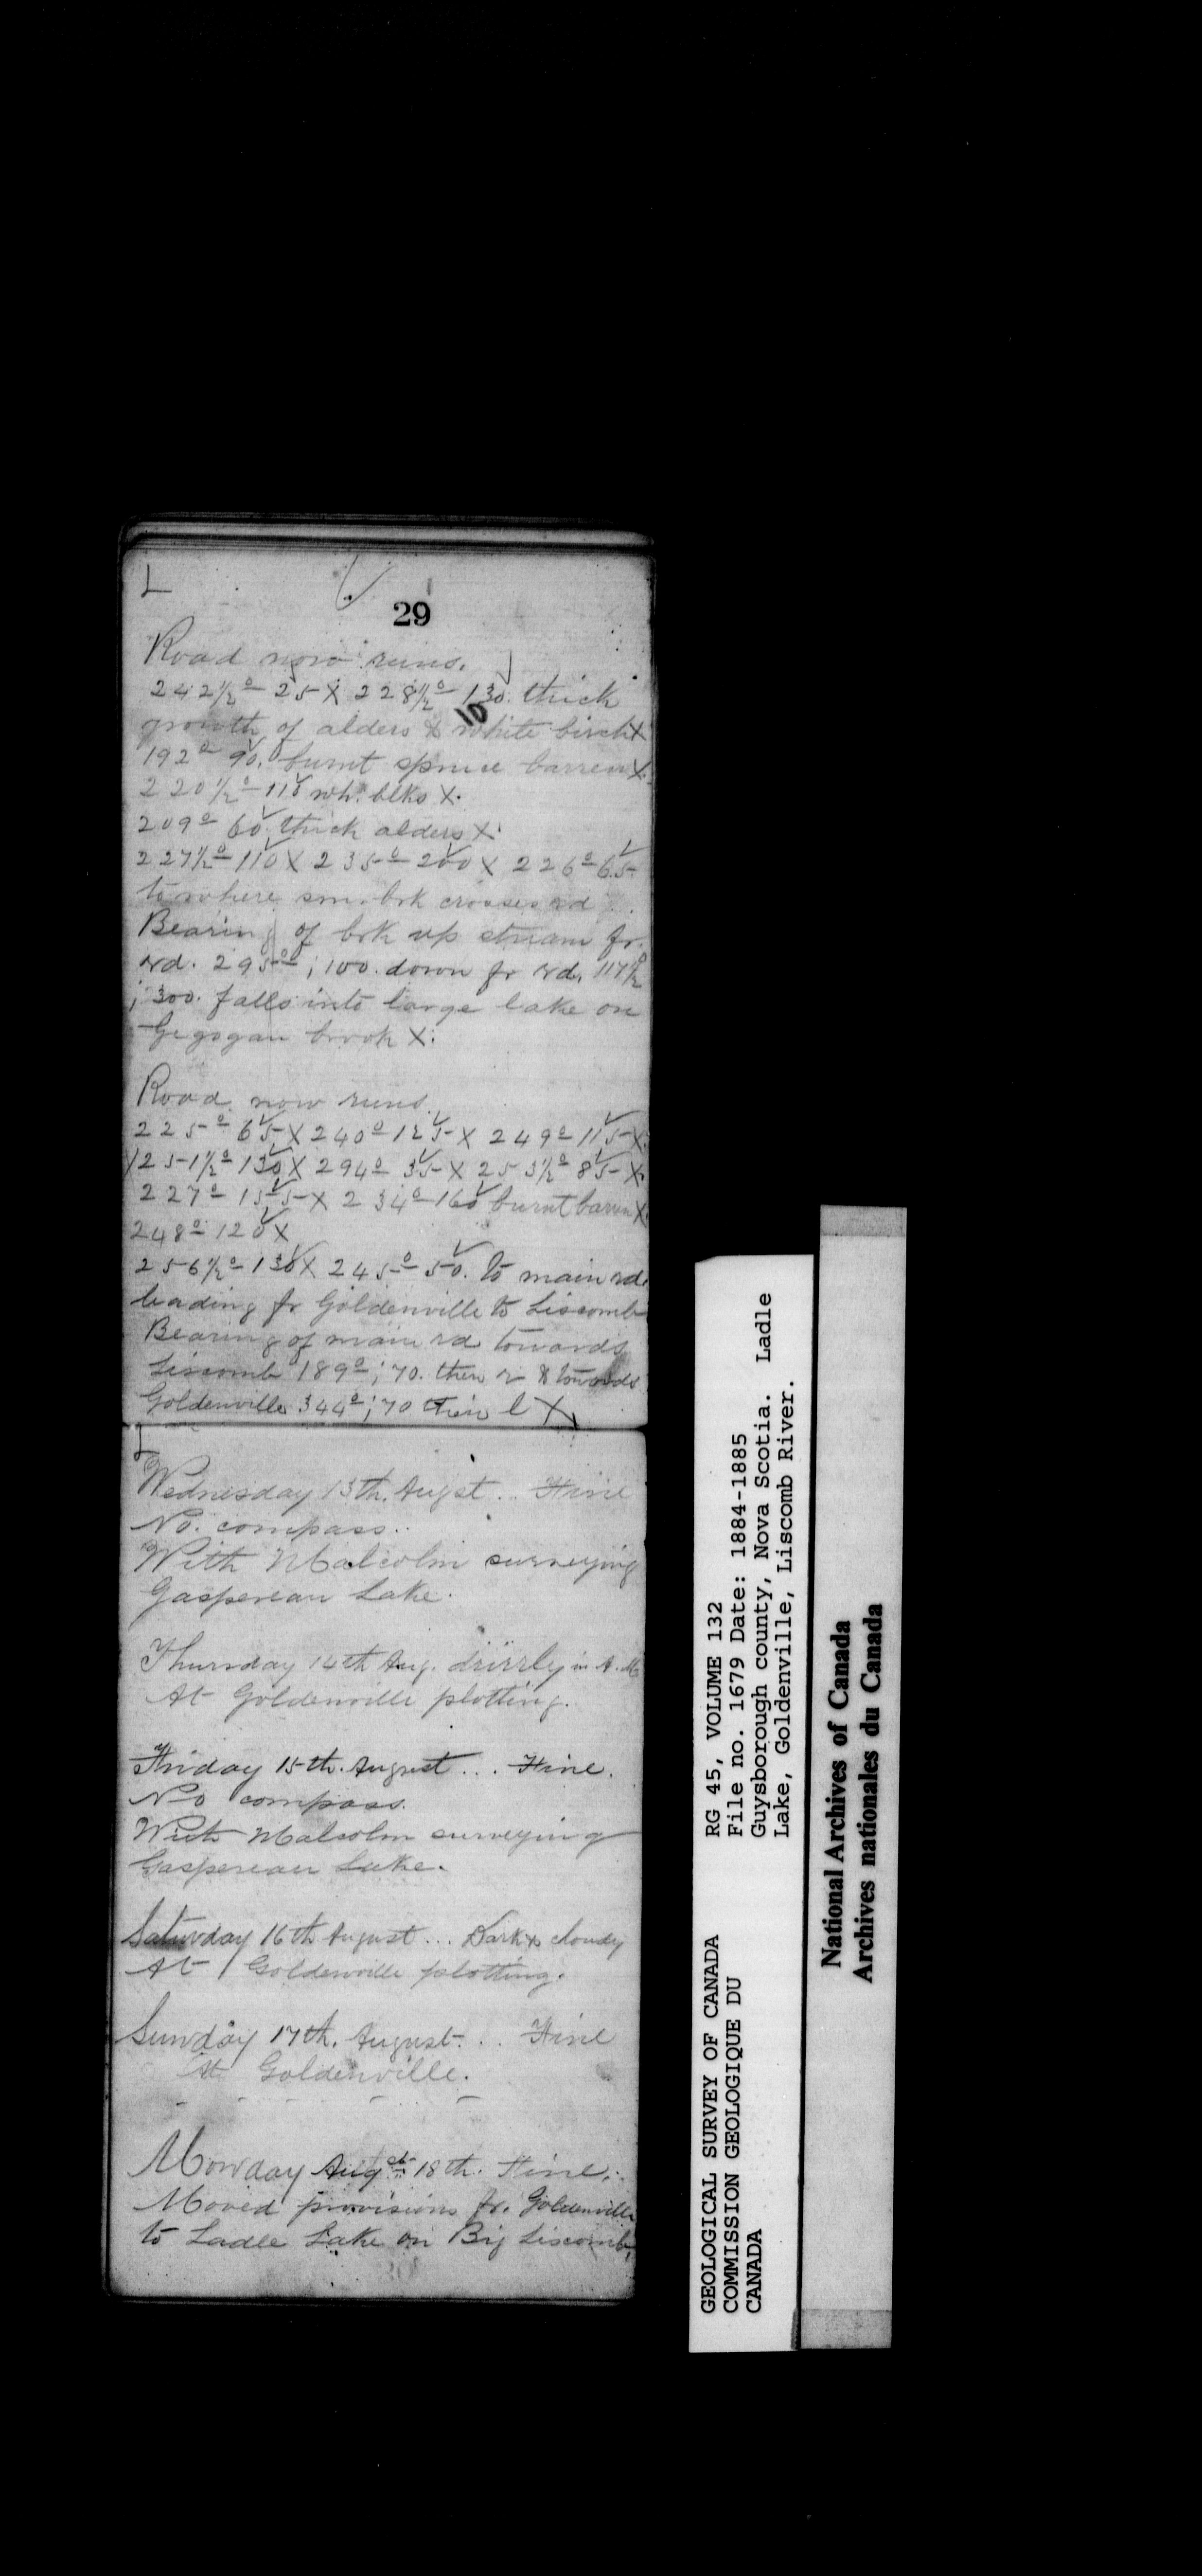 L
29
Road now runs.
242½° 25 X 228½° 130. thick
10
growth of alders & white birch X
192° 90. burnt spruce barren X.
220½° 110 wh. blks X.
209° 60. thick alders X.
227½° 110 X 235° 200 X 226° 65.
to where sm. brk crosses rd
Bearing of brk up stream fr.
rd. 295°; 100. down fr rd. 117½°
; 300. falls into large lake on
Gegogan brook X.
Road now runs.
225° 65 X 240° 125 X 249° 115 X.
251½° 130 X 294° 35 X 253½° 85 X.
227° 155 X 234° 160 burnt barren X.
248° 120 X
256½° 130 X 245° 50. to main rd.
leading fr Goldenville to Liscomb
Bearing of main rd towards
Liscomb 189°; 70. then r & towards
Goldenville 344°; 70 then l X
Wednesday 13th. Augst.. Fine
No. compass..
With Malcolm surveying
Gaspereau Lake.
Thursday 14th Aug. drizzly in A.M
At Goldenville plotting.
Friday 15th. August... Fine.
No compass.
With Malcolm surveying
Gaspereau Lake.
Saturday 16th August... Dark & cloudy
At Goldenville plotting.
Sunday 17th. August... Fine
At Goldenville.
Monday Augst 18th. Fine..
Moved provisions fr. Goldenville
to Ladle Lake on Big Liscomb,
GEOLOGICAL SURVEY OF CANADA
COMMISSION GEOLOGIQUE DU
CANADA
RG 45, VOLUME 132
File no. 1679 Date: 1884-1885
Guysborough county, Nova Scotia. Ladle
Lake, Goldenville, Liscomb River.
National Archives of Canada
Archives nationales du Canada